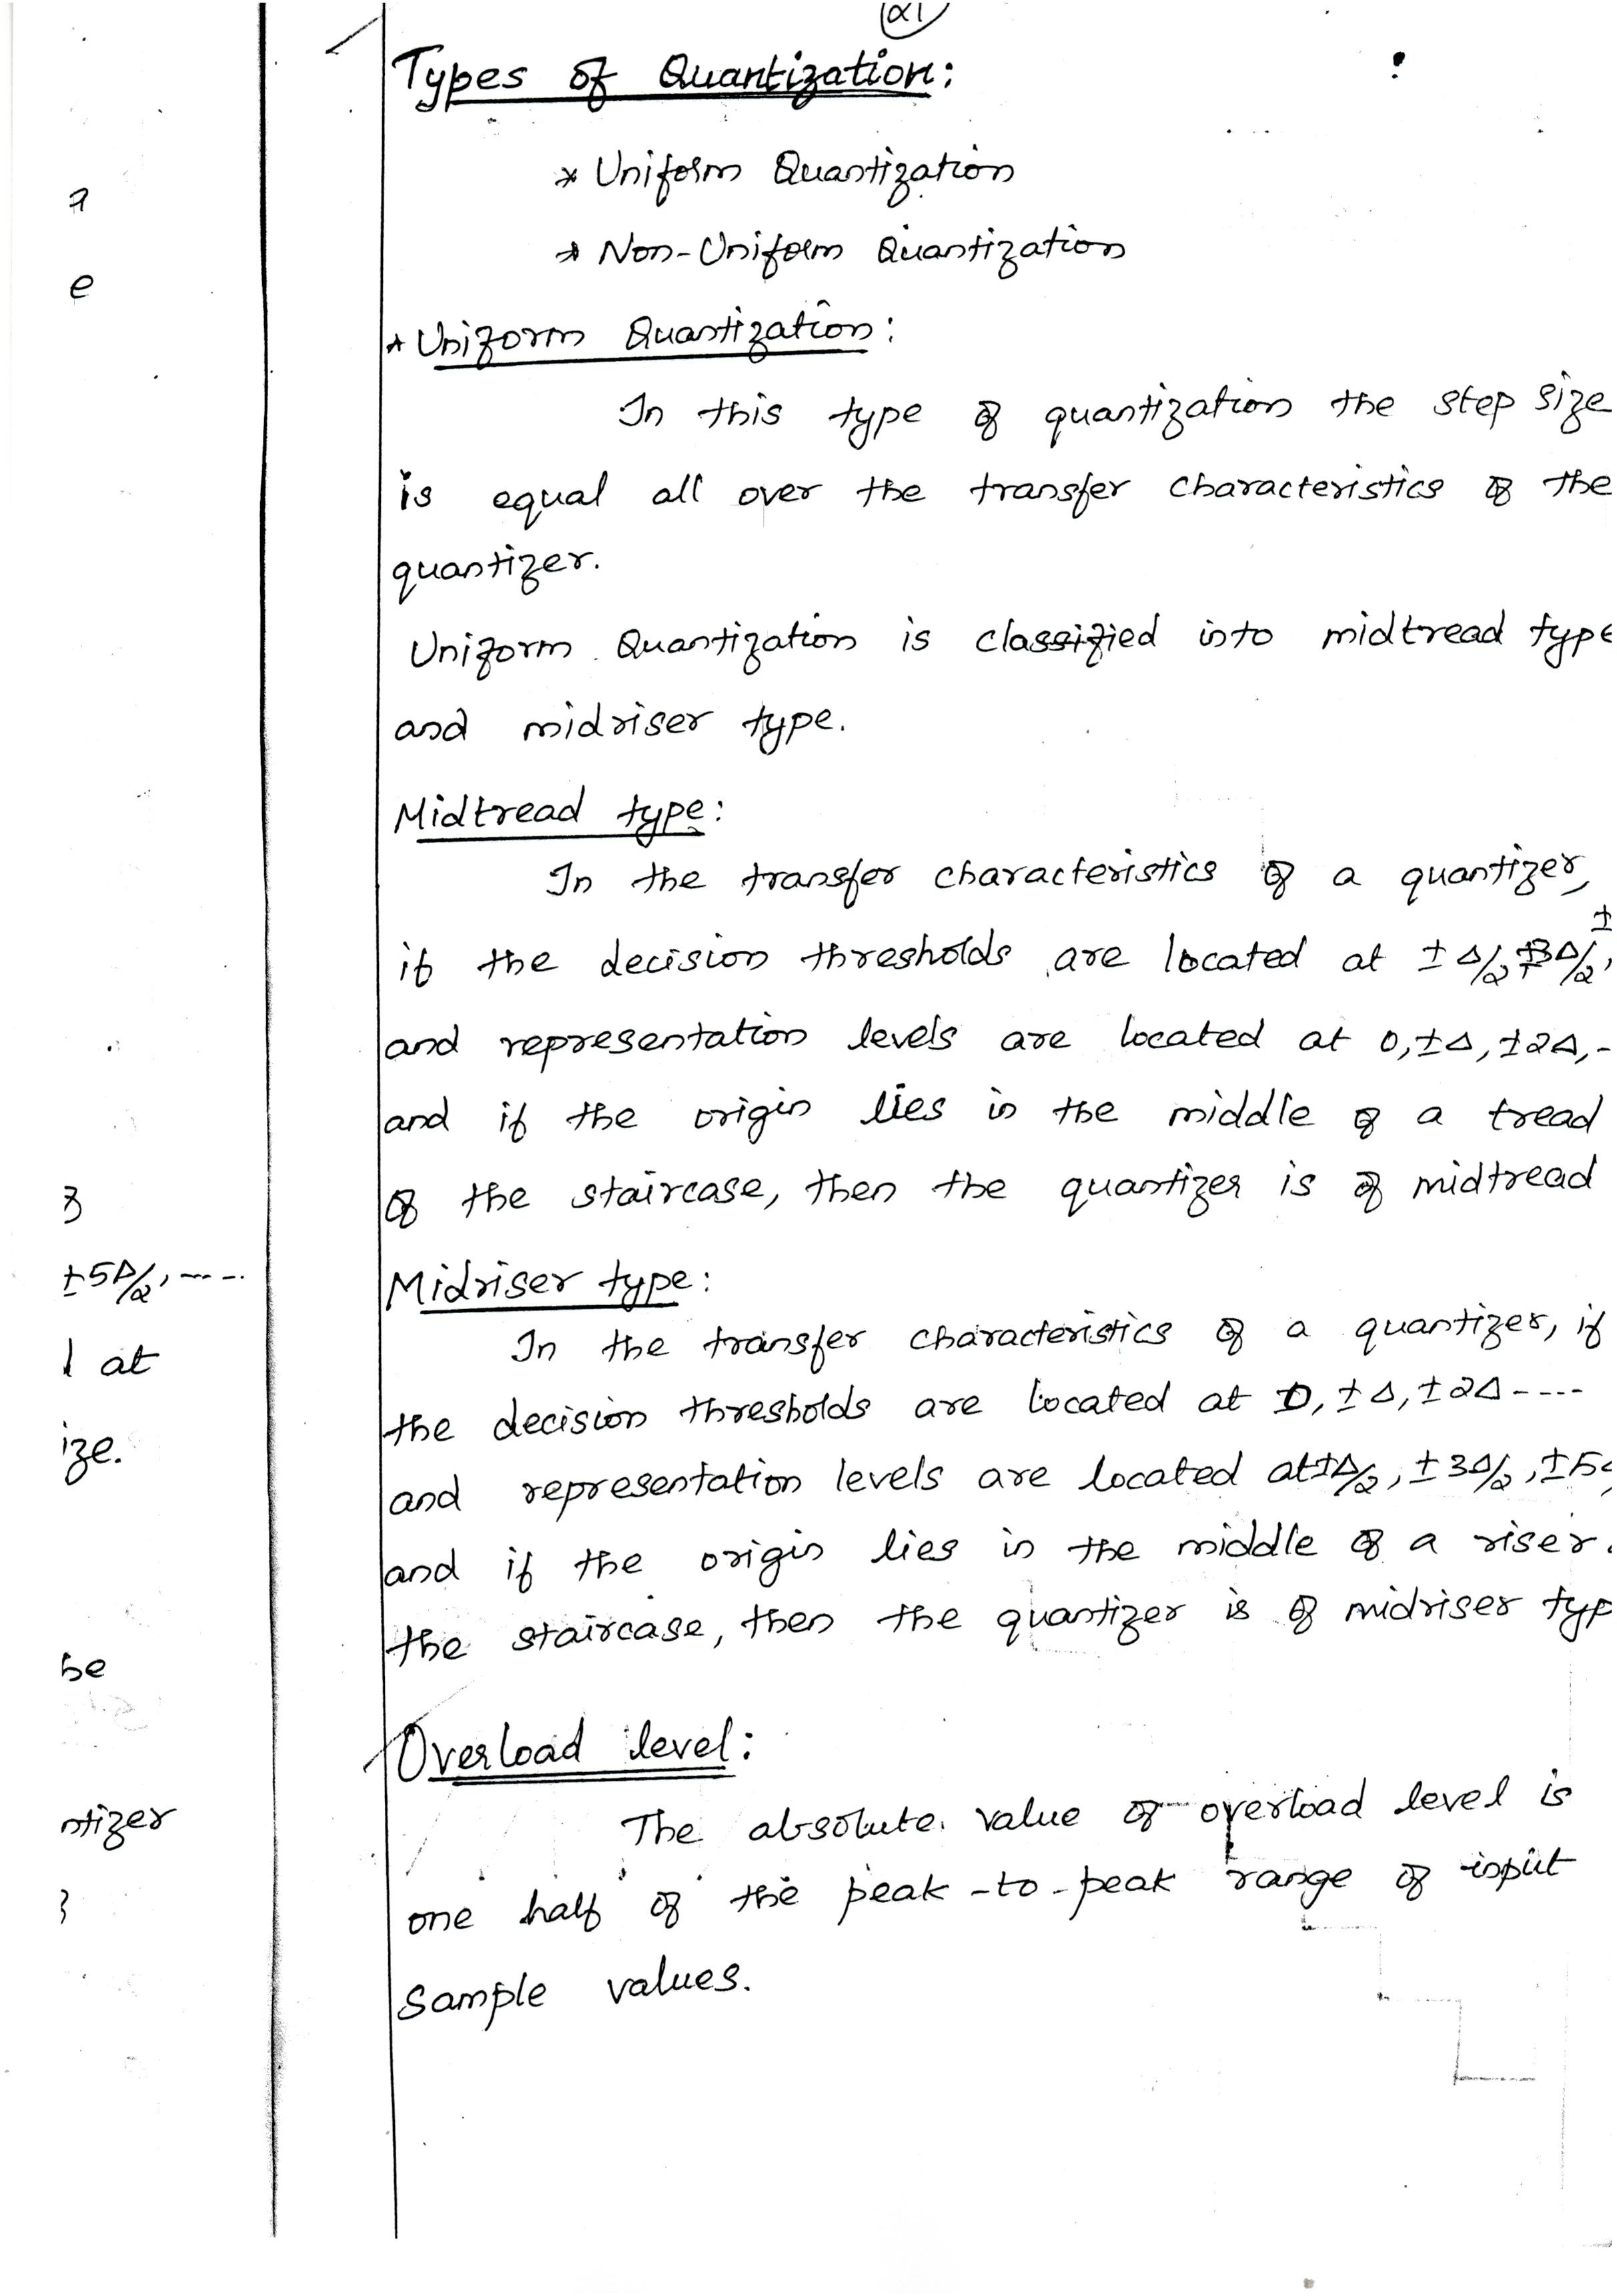 21
Types of Quantization:
* Uniform Quantization
* Non-Uniform Quantization
* Uniform Quantization:
In this type of quantization the step size
is equal all over the transfer characteristics of the
quantizer.
Uniform Quantization is classified into midtread type
and midriser type.
Midtread type:
In the transfer characteristics of a quantizer,
if the decision thresholds are located at ±Δ/2, ±3Δ/2, ±
and representation levels are located at 0, ±Δ, ±2Δ, -
and if the origin lies in the middle of a tread
of the staircase, then the quantizer is of midtread
Midriser type:
In the transfer characteristics of a quantizer, if
the decision thresholds are located at 0, ±Δ, ±2Δ ----
and representation levels are located at ±Δ/2, ±3Δ/2, ±5
and if the origin lies in the middle of a riser
the staircase, then the quantizer is of midriser typ
Overload level:
The absolute value of overload level is
one half of the peak-to-peak range of input
Sample values.
e
±5Δ/2, ----
at
ize.
be
ntizer